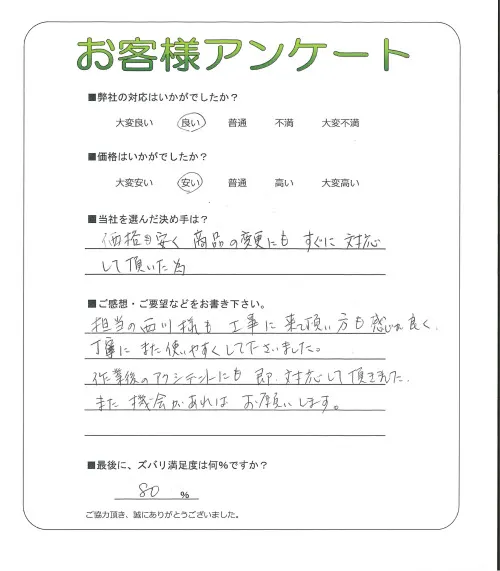 お客様アンケート
■弊社の対応はいかがでしたか？
大変良い 良い 普通 不満 大変不満
■価格はいかがでしたか？
大変安い 安い 普通 高い 大変高い
■当社を選んだ決め手は？
価格も安く 商品の変更にも すぐに 対応
して頂いた為
■ご感想・ご要望などをお書き下さい。
担当の西川様も 工事に 来て頂い方も 感じが良く、
丁寧に また 使いやすくして下さいました。
作業後のアクシデントにも 即 対応して頂きました。
また 機会があれば お願いします。
■最後に、ズバリ満足度は何%ですか？
80 %
ご協力頂き、誠にありがとうございました。